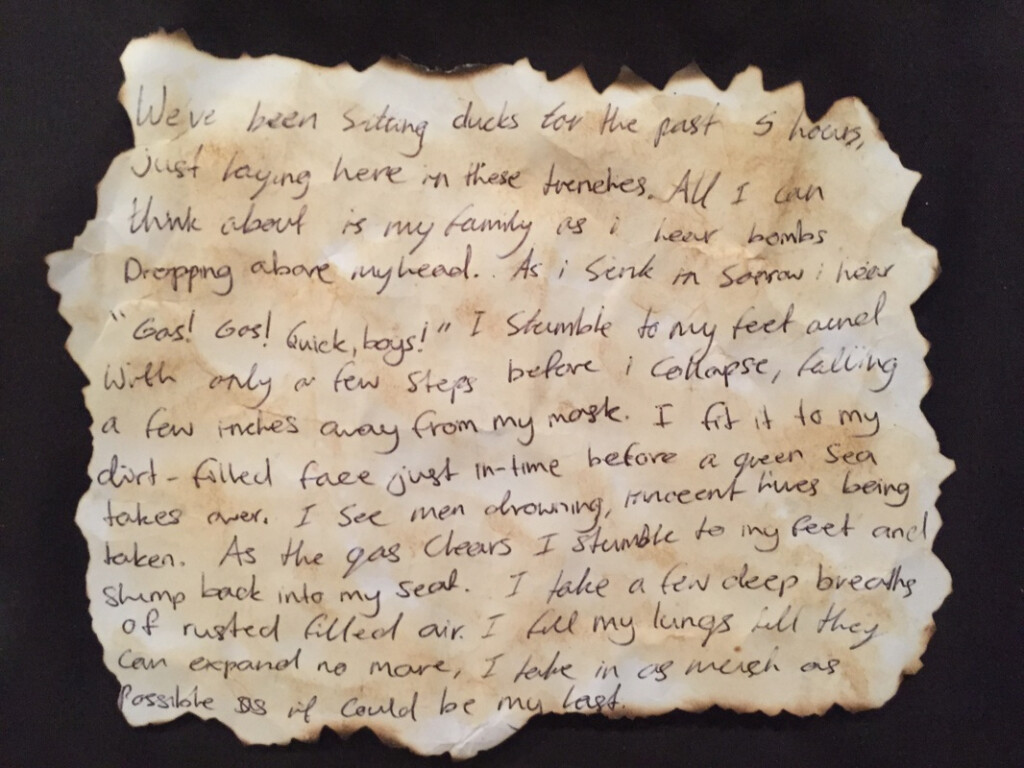 We've been sitting ducks for the past 5 hours,
just laying here in these trenches. All I can
think about is my family as i hear bombs
Dropping above my head. As i sink in sorrow i hear
"Gas! Gas! Quick, boys!" I stumble to my feet and
With only a few steps before i collapse, falling
a few inches away from my mask. I fit it to my
dirt-filled face just in-time before a green sea
takes over. I see men drowning, innocent lives being
taken. As the gas clears I stumble to my feet and
slump back into my seat. I take a few deep breaths
of rusted filled air. I fill my lungs till they
can expand no more, I take in as much as
Possible as it could be my last.